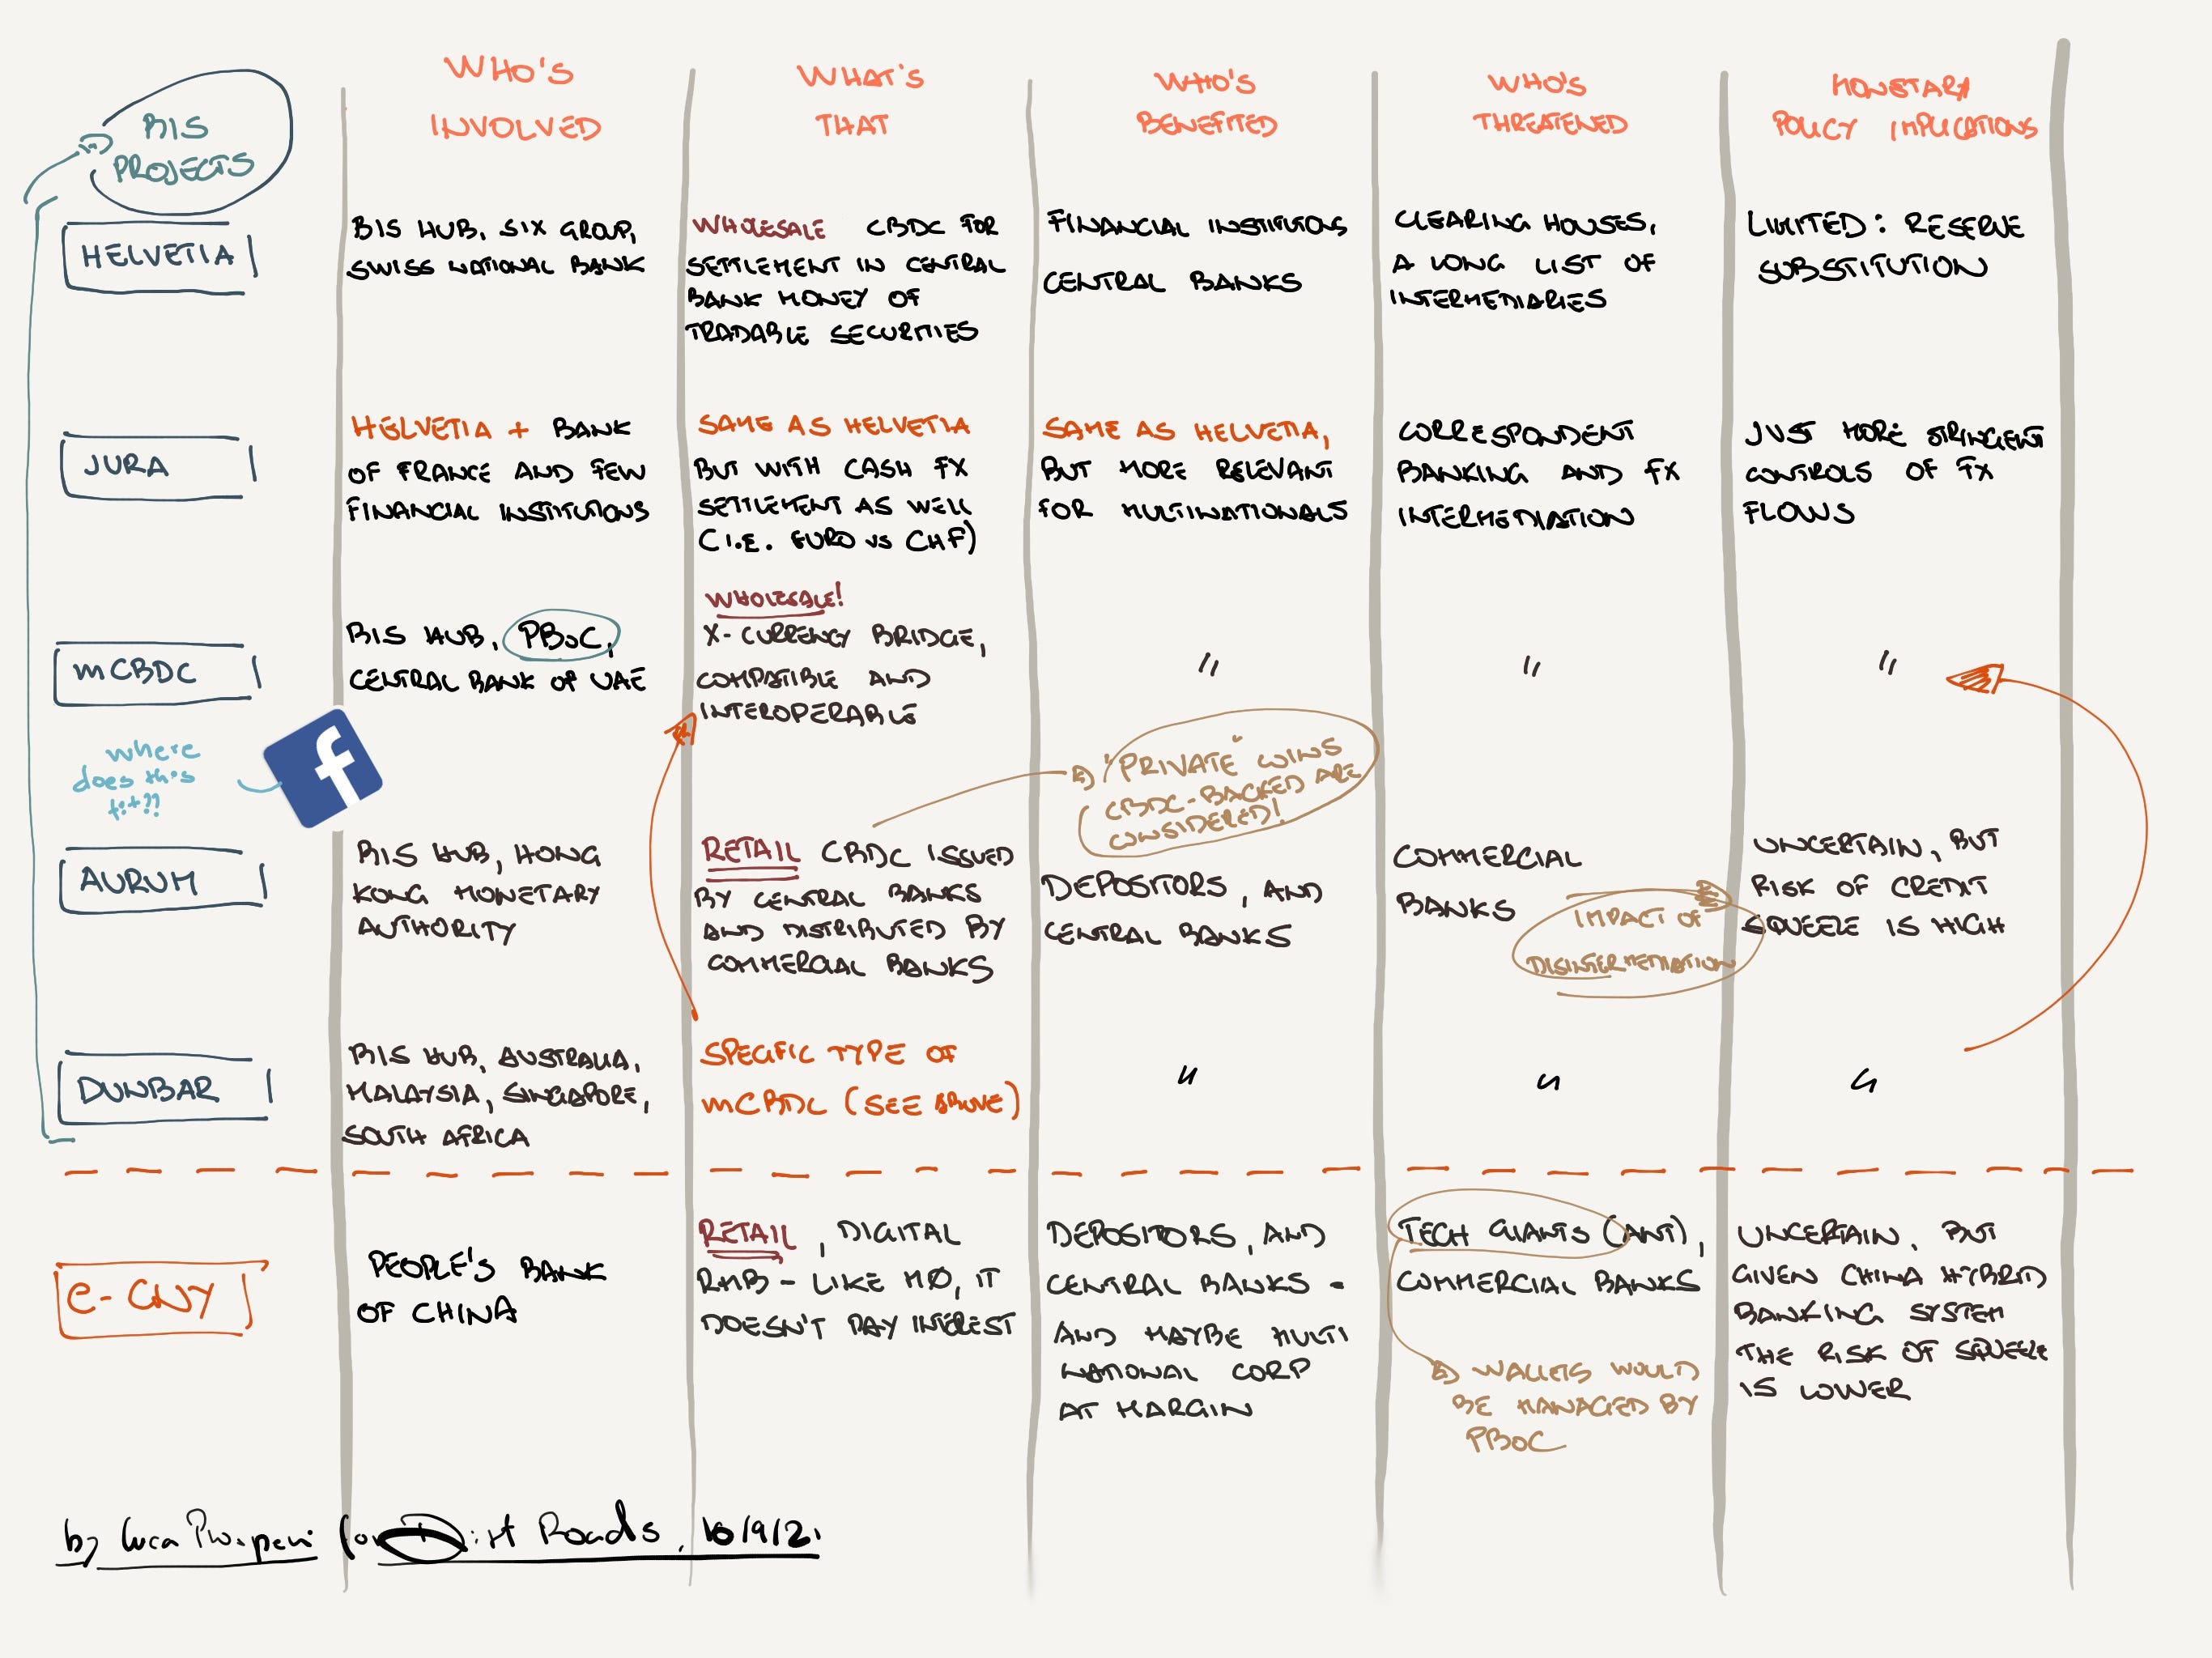 BIS
PROJECTS
WHO'S
INVOLVED
WHAT'S
THAT
WHO'S
BENEFITED
WHO'S
THREATENED
MONETARY
POLICY IMPLICATIONS
HELVETIA
BIS HUB, SIX GROUP,
SWISS NATIONAL BANK
WHOLESALE CBDC FOR
SETTLEMENT IN CENTRAL
BANK MONEY OF
TRADABLE SECURITIES
FINANCIAL INSTITUTIONS
CENTRAL BANKS
CLEARING HOUSES,
A LONG LIST OF
INTERMEDIARIES
LIMITED: RESERVE
SUBSTITUTION
JURA
HELVETIA + BANK
OF FRANCE AND FEW
FINANCIAL INSTITUTIONS
SAME AS HELVETIA
BUT WITH CASH FX
SETTLEMENT AS WELL
(I.E. EURO VS CHF)
SAME AS HELVETIA,
BUT MORE RELEVANT
FOR MULTINATIONALS
CORRESPONDENT
BANKING AND FX
INTERMEDIATION
JUST MORE STRINGENT
CONTROLS OF FX
FLOWS
mCBDC
BIS HUB, PBoC,
CENTRAL BANK OF UAE
WHOLESALE!
X-CURRENCY BRIDGE,
COMPATIBLE AND
INTEROPERABLE
"
"
"
where
does this
fit??
f
"PRIVATE" COINS
CBDC-BACKED ARE
CONSIDERED!
AURUM
BIS HUB, HONG
KONG MONETARY
AUTHORITY
RETAIL CBDC ISSUED
BY CENTRAL BANKS
AND DISTRIBUTED BY
COMMERCIAL BANKS
DEPOSITORS, AND
CENTRAL BANKS
COMMERCIAL
BANKS
IMPACT OF
DISINTERMEDIATION
UNCERTAIN, BUT
RISK OF CREDIT
SQUEEZE IS HIGH
DUNBAR
BIS HUB, AUSTRALIA,
MALAYSIA, SINGAPORE,
SOUTH AFRICA
SPECIFIC TYPE OF
mCBDC (SEE ABOVE)
"
"
"
e-CNY
PEOPLE'S BANK
OF CHINA
RETAIL, DIGITAL
RMB - LIKE M0, IT
DOESN'T PAY INTEREST
DEPOSITORS, AND
CENTRAL BANKS -
AND MAYBE MULTI
NATIONAL CORP
AT MARGIN
TECH GIANTS (ANT),
COMMERCIAL BANKS
WALLETS WOULD
BE MANAGED BY
PBOC
UNCERTAIN, BUT
GIVEN CHINA HYBRID
BANKING SYSTEM
THE RISK OF SQUEEZE
IS LOWER
by Luca Prosperi Roads,